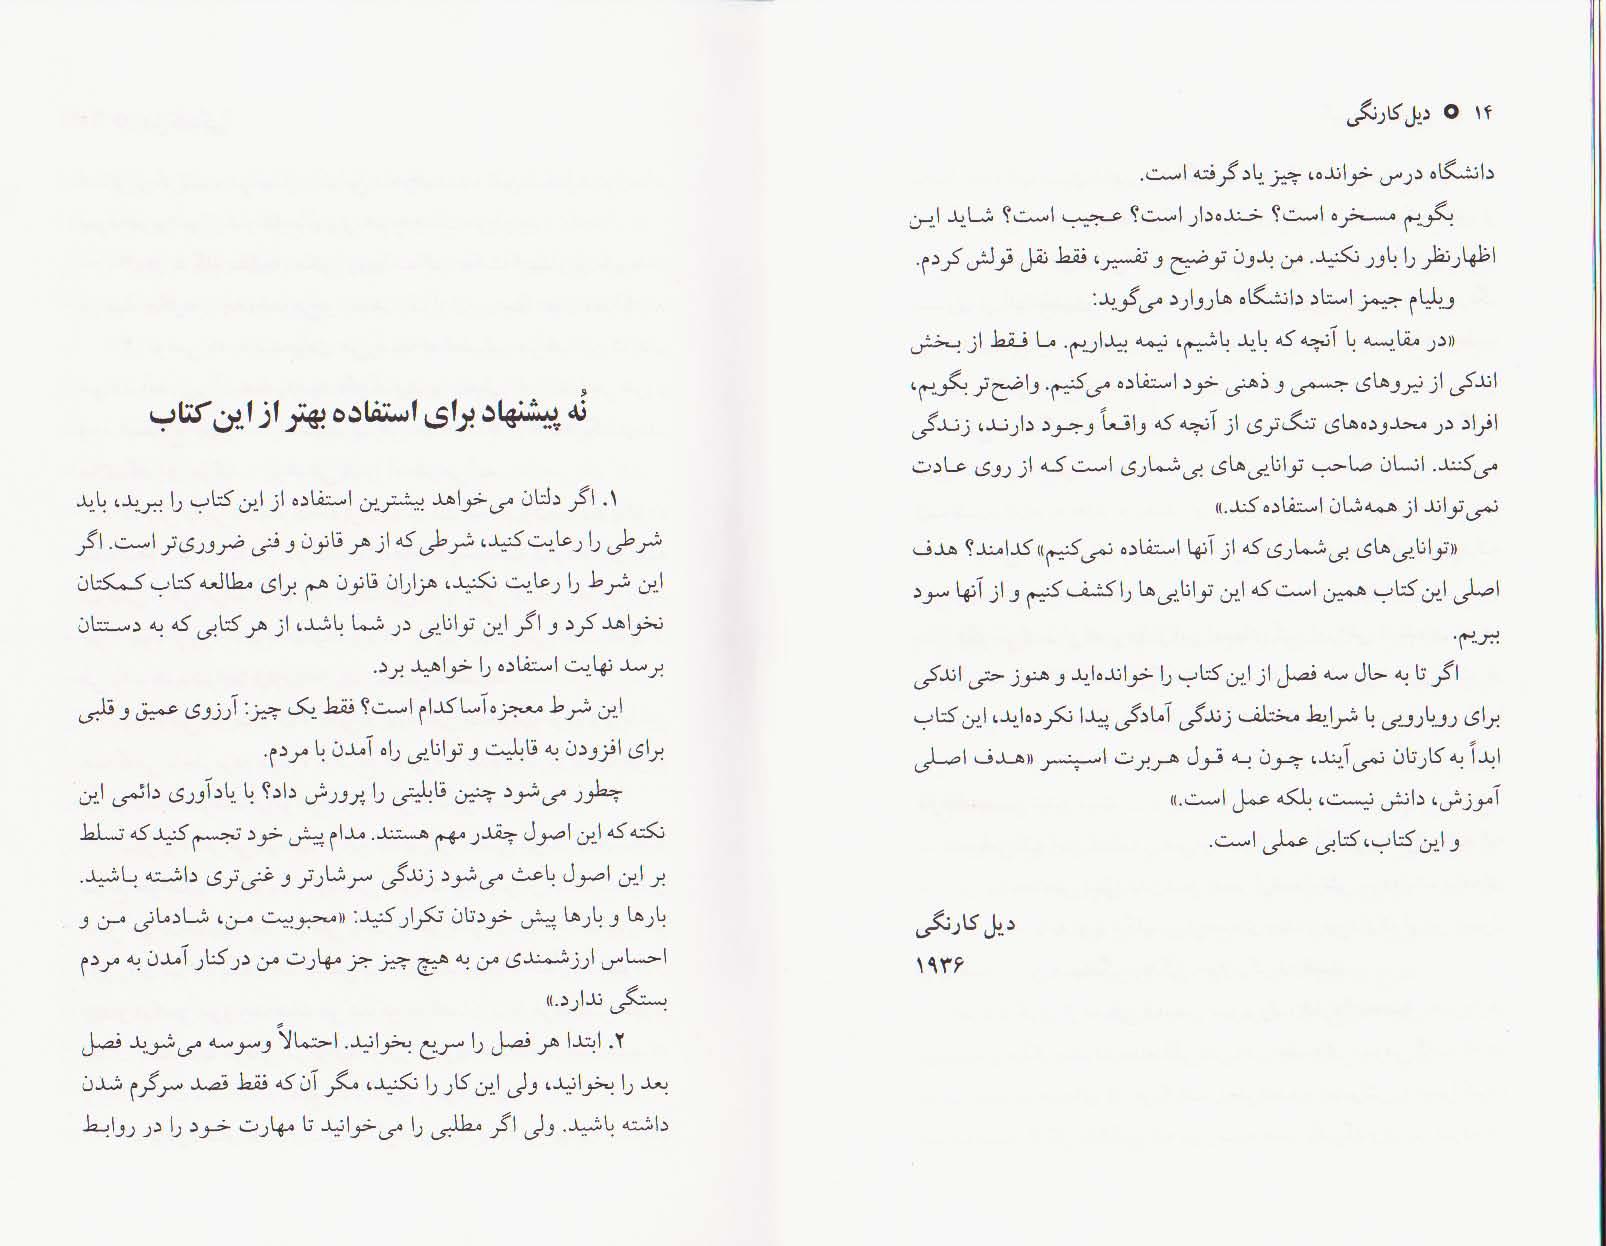 ۱۴ ○ دیل کارنگی
دانشگاه درس خوانده، چیز یاد گرفته است.
بگویم مسخره است؟ خنده‌دار است؟ عجیب است؟ شاید این
اظهارنظر را باور نکنید. من بدون توضیح و تفسیر، فقط نقل قولش کردم.
ویلیام جیمز استاد دانشگاه هاروارد می‌گوید:
«در مقایسه با آنچه که باید باشیم، نیمه بیداریم. ما فقط از بخش
اندکی از نیروهای جسمی و ذهنی خود استفاده می‌کنیم. واضح‌تر بگویم،
افراد در محدوده‌های تنگ‌تری از آنچه که واقعاً وجود دارند، زندگی
می‌کنند. انسان صاحب توانایی‌های بی‌شماری است که از روی عادت
نمی‌تواند از همه‌شان استفاده کند.»
«توانایی‌های بی‌شماری که از آنها استفاده نمی‌کنیم» کدامند؟ هدف
اصلی این کتاب همین است که این توانایی‌ها را کشف کنیم و از آنها سود
ببریم.
اگر تا به حال سه فصل از این کتاب را خوانده‌اید و هنوز حتی اندکی
برای رویارویی با شرایط مختلف زندگی آمادگی پیدا نکرده‌اید، این کتاب
ابداً به کارتان نمی‌آیند، چون به قول هربرت اسپنسر «هدف اصلی
آموزش، دانش نیست، بلکه عمل است.»
و این کتاب، کتابی عملی است.
دیل کارنگی
۱۹۳۶
نُه پیشنهاد برای استفاده بهتر از این کتاب
۱. اگر دلتان می‌خواهد بیشترین استفاده از این کتاب را ببرید، باید
شرطی را رعایت کنید، شرطی که از هر قانون و فنی ضروری‌تر است. اگر
این شرط را رعایت نکنید، هزاران قانون هم برای مطالعه کتاب کمکتان
نخواهد کرد و اگر این توانایی در شما باشد، از هر کتابی که به دستتان
برسد نهایت استفاده را خواهید برد.
این شرط معجزه‌آسا کدام است؟ فقط یک چیز: آرزوی عمیق و قلبی
برای افزودن به قابلیت و توانایی راه آمدن با مردم.
چطور می‌شود چنین قابلیتی را پرورش داد؟ با یادآوری دائمی این
نکته که این اصول چقدر مهم هستند. مدام پیش خود تجسم کنید که تسلط
بر این اصول باعث می‌شود زندگی سرشارتر و غنی‌تری داشته باشید.
بارها و بارها پیش خودتان تکرار کنید: «محبوبیت من، شادمانی من و
احساس ارزشمندی من به هیچ چیز جز مهارت من در کنار آمدن به مردم
بستگی ندارد.»
۲. ابتدا هر فصل را سریع بخوانید. احتمالاً وسوسه می‌شوید فصل
بعد را بخوانید، ولی این کار را نکنید، مگر آن که فقط قصد سرگرم شدن
داشته باشید. ولی اگر مطلبی را می‌خوانید تا مهارت خود را در روابط